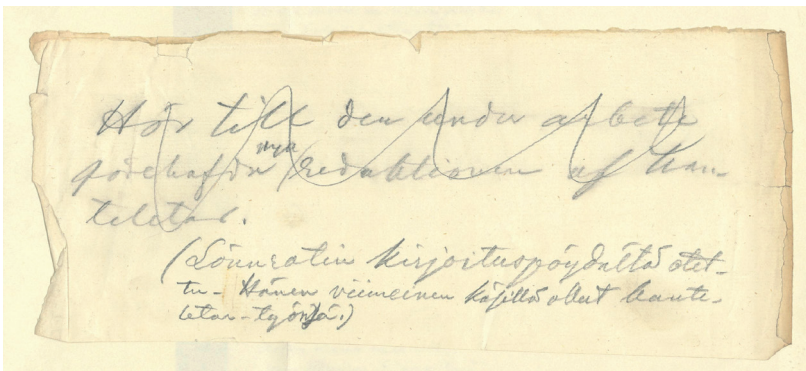 Hör till den under arbete
förehafda nya redaktionen af Kan-
teletar.
(Lönnrotin kirjoituspöydältä otet-
tu - Hänen viimeinen käsillä ollut kante-
letar-työnsä.)